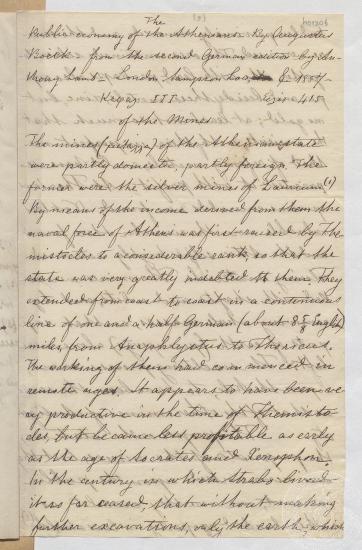 The
Public economy of the Athenians. By Augustus
Boeckh from the second German edition by An-
thony Lamb London Sampson Low & C 1857
III 415
of the Mines
The mines (μέταλλα) of the Athenian state
were partly domestic, partly foreign. The
former were the silver mines of Laurium (1)
By means of the income derived from them the
naval force of Athens was first raised by The
mistocles to a considerable rank, so that the
state was very greatly indebted to them. They
extended from coast to coast in a continuous
line of one and a half German (about English)
miles from Anaphlystus to Thoricus.
The working of them had commenced in
remote ages. It appears to have been ve-
ry productive in the time of Themisto
cles, but became less profitable as early
as the age of Socrates and Xenophon.
In the century in which Strabo lived
it so far ceased, that without making
further excavations, only the earth, which